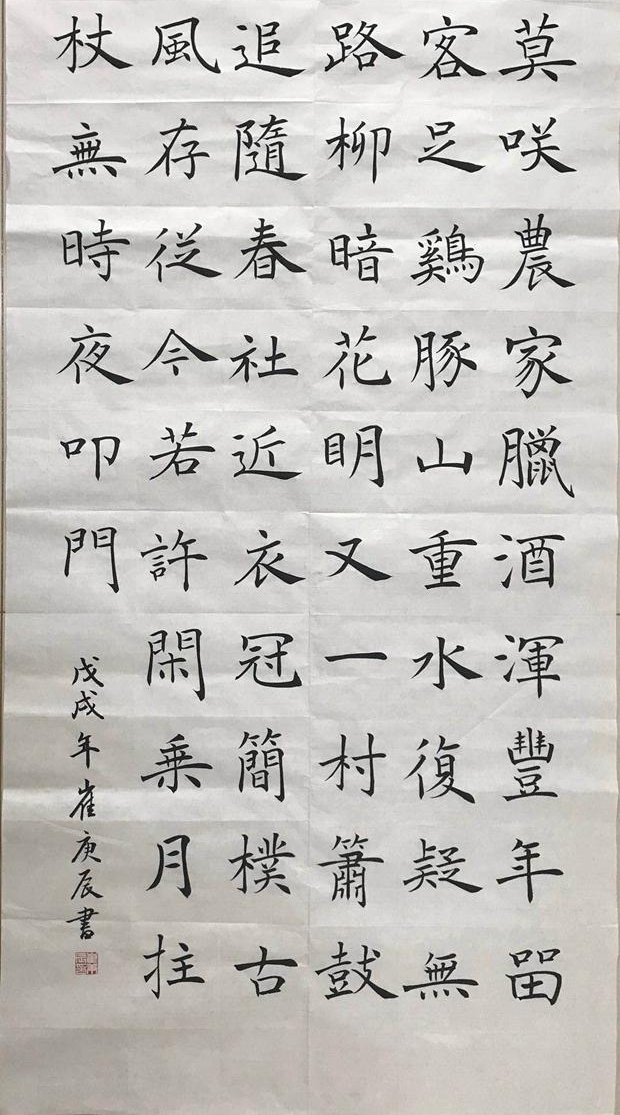 莫咲農家臘酒渾豐年留
客足鷄豚山重水復疑無
路柳暗花眀又一村簫鼓
追隨春社近衣冠簡樸古
風存従今若許閑乗月拄
杖無時夜叩門
戊戌年崔庚辰書